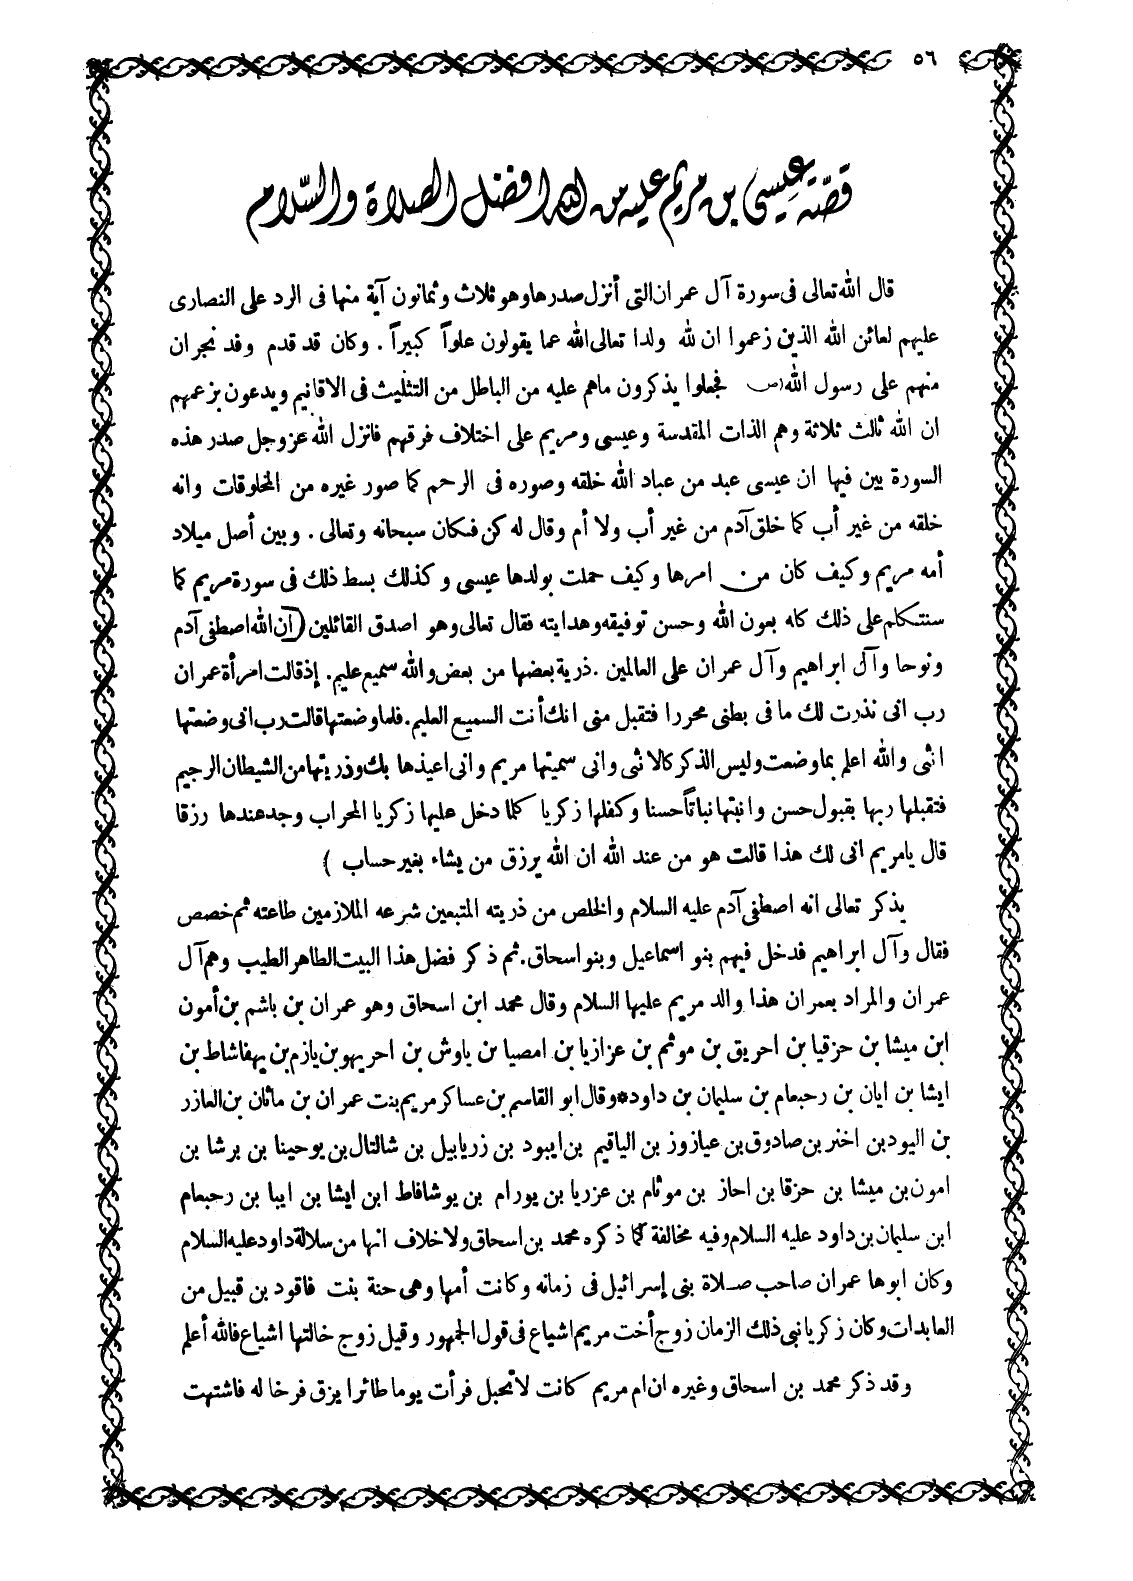 ٥٦
قصة عيسى بن مريم عليه من الله افضل الصلاة والسّلام
قال الله تعالى فى سورة آل عمران التى أنزل صدرها وهو ثلاث وثمانون آية منها فى الرد على النصارى
عليهم لعائن الله الذين زعموا ان لله ولدا تعالى الله عما يقولون علواً كبيراً . وكان قد قدم وفد نجران
منهم على رسول الله (ص) فجعلوا يذكرون ماهم عليه من الباطل من التثليث فى الاقانيم ويدعون بزعمهم
ان الله ثالث ثلاثة وهم الذات المقدسة وعيسى ومريم على اختلاف فرقهم فانزل الله عز وجل صدر هذه
السورة بين فيها ان عيسى عبد من عباد الله خلقه وصوره فى الرحم كما صور غيره من المخلوقات وانه
خلقه من غير أب كما خلق آدم من غير أب ولا أم وقال له كن فكان سبحانه وتعالى . وبين أصل ميلاد
أمه مريم وكيف كان من امرها وكيف حملت بولدها عيسى وكذلك بسط ذلك فى سورة مريم كما
سنتكلم على ذلك كله بعون الله وحسن توفيقه وهدايته فقال تعالى وهو اصدق القائلين (ان الله اصطفى آدم
ونوحا وآل ابراهيم وآل عمران على العالمين . ذرية بعضها من بعض والله سميع عليم. إذ قالت امرأة عمران
رب انى نذرت لك ما فى بطنى محررا فتقبل منى انك أنت السميع العليم. فلما وضعتها قالت رب انى وضعتها
انثى والله اعلم بما وضعت وليس الذكر كالانثى وانى سميتها مريم وانى اعيذها بك وذريتها من الشيطان الرجيم
فتقبلها ربها بقبول حسن وانبتها نباتاً حسنا وكفلها زكريا كلما دخل عليها زكريا المحراب وجد عندها رزقا
قال يا مريم انى لك هذا قالت هو من عند الله ان الله يرزق من يشاء بغير حساب )
يذكر تعالى انه اصطفى آدم عليه السلام والخلص من ذريته المتبعين شرعه الملازمين طاعته ثم خصص
فقال وآل ابراهيم فدخل فيهم بنو اسماعيل وبنو اسحاق . ثم ذكر فضل هذا البيت الطاهر الطيب وهم آل
عمران والمراد بعمران هذا والد مريم عليها السلام وقال محمد ابن اسحاق وهو عمران بن باشم بن أمون
ابن ميشا بن حزقيا بن احريق بن موثم بن عزازيا بن امصيا بن ياوش بن احريهو بن يازم بن يهفاشاط بن
ايشا بن ايان بن رحبعام بن سليمان بن داود* وقال ابو القاسم بن عساكر مريم بنت عمران بن ماثان بن العازر
بن اليود بن اخنر بن صادوق بن عيازوز بن الياقيم بن ايبود بن زريابيل بن شالتال بن يوحينا بن برشا بن
امون بن ميشا بن حزقا بن احاز بن موثام بن عزريا بن يورام بن يوشافاط ابن ايشا بن ايبا بن رحبعام
ابن سليمان بن داود عليه السلام وفيه مخالفة كما ذكره محمد بن اسحاق ولا خلاف انها من سلالة داود عليه السلام
وكان ابوها عمران صاحب صلاة بنى إسرائيل فى زمانه وكانت أمها وهى حنة بنت فاقود بن قبيل من
العابدات وكان زكريا نبى ذلك الزمان زوج أخت مريم اشياع فى قول الجمهور وقيل زوج خالتها اشياع فالله أعلم
وقد ذكر محمد بن اسحاق وغيره ان ام مريم كانت لا تحبل فرأت يوما طائرا يزق فرخا له فاشتهت